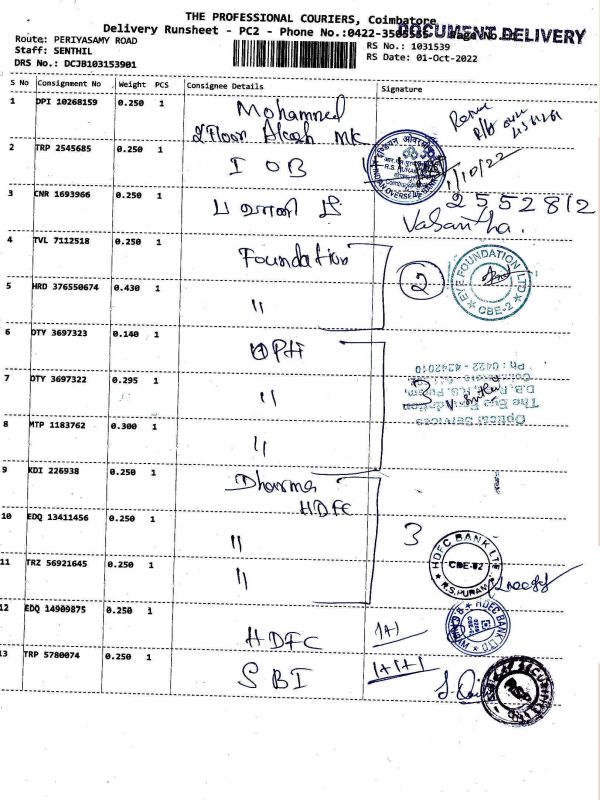 THE PROFESSIONAL COURIERS, Coimbatore
DOCUMENT DELIVERY
Delivery Runsheet - PC2 - Phone No.:0422-3505585
Route: PERIYASAMY ROAD
RS No.: 1031539
Staff: SENTHIL
RS Date: 01-Oct-2022
DRS No.: DCJB103153901
S No Consignment No Weight PCS Consignee Details Signature
1 DPI 10268159 0.250 1 Mohammed
2 TRP 2545685 0.250 1 I O B
1/10/22
3 CNR 1693966 0.250 1
2552812
Vasantha.
4 TVL 7112518 0.250 1 Foundation
2
EYE FOUNDATION LTD
CBE-2
5 HRD 376550674 0.430 1 "
6 DTY 3697323 0.140 1
Ph : 0422 - 4242010
7 DTY 3697322 0.295 1 "
3
The Eye Foundation
Optical Services
8 MTP 1183762 0.300 1 "
9 KDI 226938 0.250 1 Dharma
HDFC
10 EDQ 13411456 0.250 1 "
3
HDFC BANK LTD
CBE-02
R.S.PURAM
11 TRZ 56921645 0.250 1 "
12 EDQ 14909875 0.250 1 HDFC
1+1
HDFC BANK LTD
13 TRP 5780074 0.250 1 SBI
1+1+1